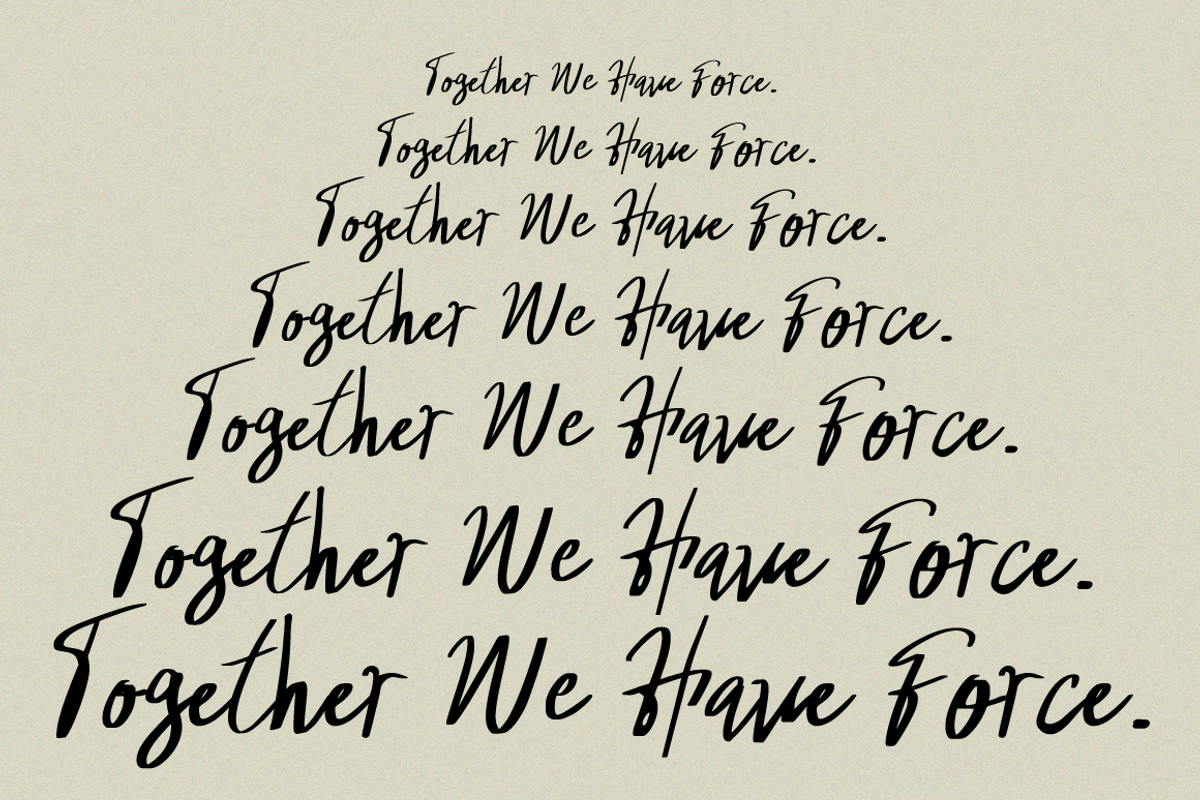 Together We Have Force.
Together We Have Force.
Together We Have Force.
Together We Have Force.
Together We Have Force.
Together We Have Force.
Together We Have Force.